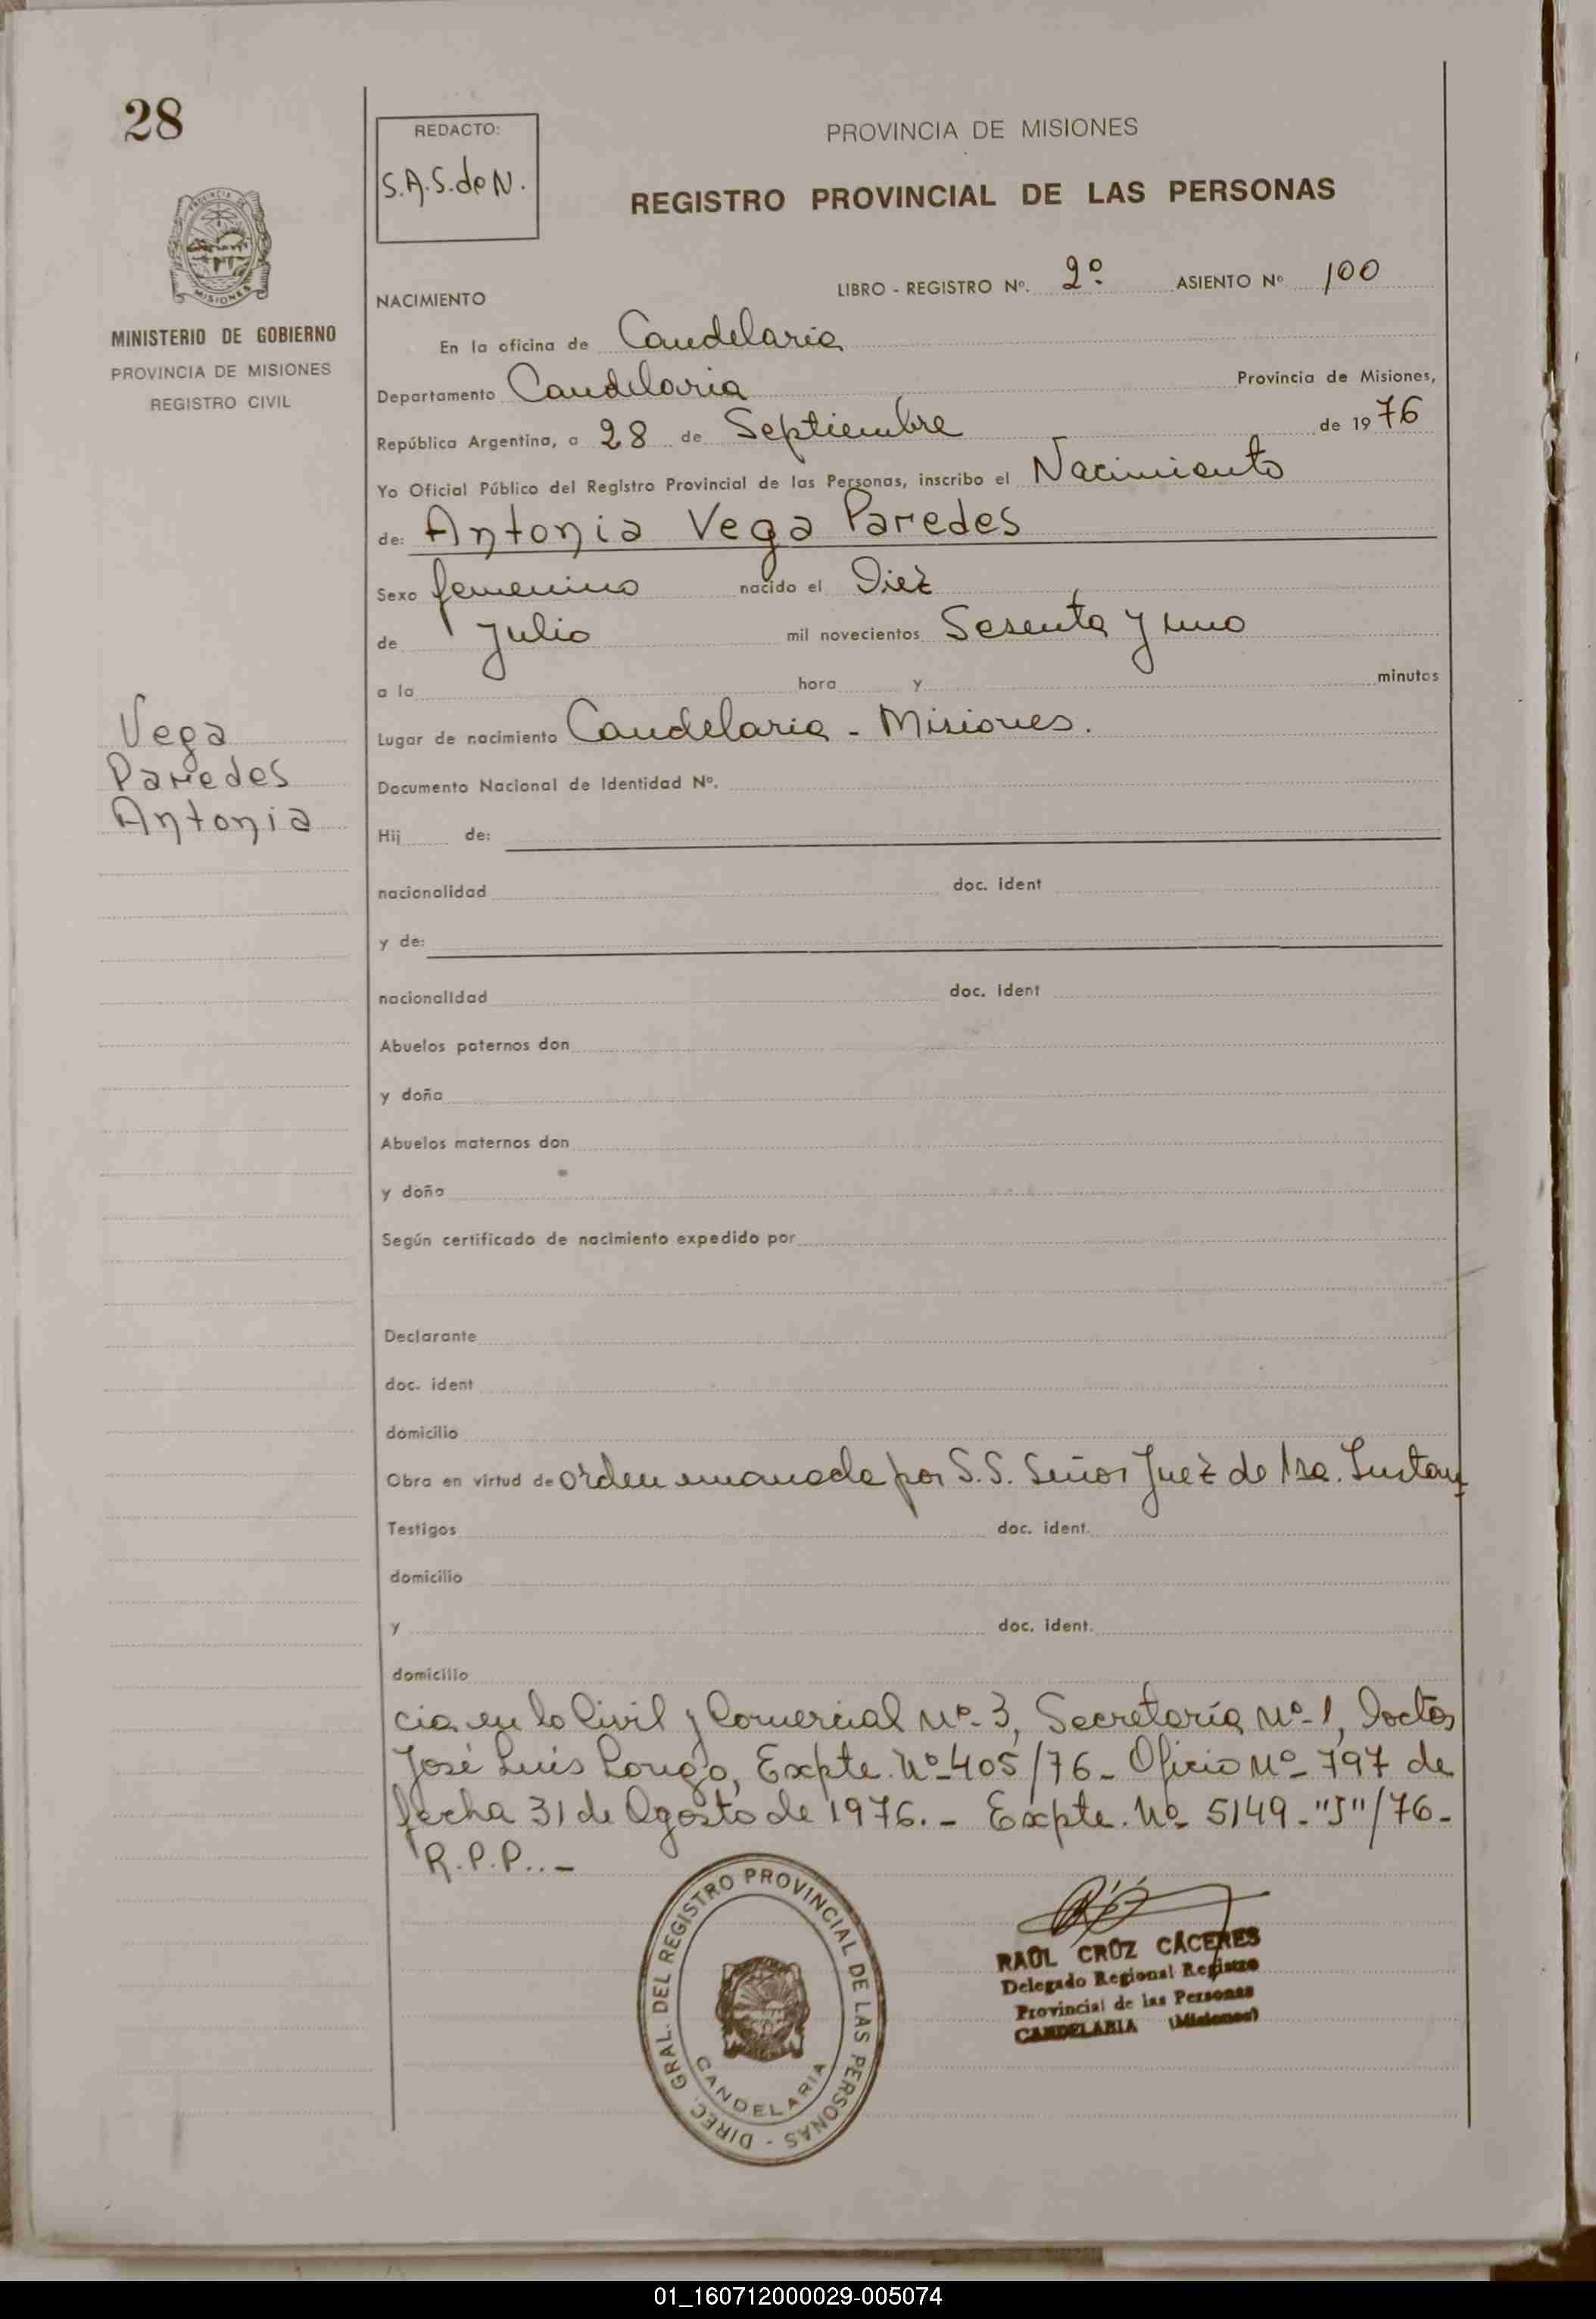 28
REDACTO:
S.A.S.deN.
PROVINCIA DE MISIONES
REGISTRO PROVINCIAL DE LAS PERSONAS
PROVINCIA DE
MISIONES
MINISTERIO DE GOBIERNO
PROVINCIA DE MISIONES
REGISTRO CIVIL
NACIMIENTO
LIBRO - REGISTRO Nº. 2º ASIENTO Nº 100
En la oficina de Candelaria
Departamento Candelaria Provincia de Misiones,
República Argentina, a 28 de Septiembre de 1976
Yo Oficial Público del Registro Provincial de las Personas, inscribo el Nacimiento
de: Antonia Vega Paredes
Sexo femenino nacido el Diez
de Julio mil novecientos Sesenta y uno
a la hora y minutos
Lugar de nacimiento Candelaria - Misiones.
Vega
Paredes
Antonia
Documento Nacional de Identidad Nº.
Hij de:
nacionalidad doc. ident
y de:
nacionalidad doc. ident
Abuelos paternos don
y doña
Abuelos maternos don
y doña
Según certificado de nacimiento expedido por
Declarante
doc. ident
domicilio
Obra en virtud de orden emanada por S.S. Señor Juez de 1ra. Instan=
Testigos doc. ident.
domicilio
y doc. ident.
domicilio
cia en lo Civil y Comercial Nº-3, Secretaría Nº-1, Doctor
José Luis Longo, Expte. Nº-405/76- Oficio Nº- 797 de
fecha 31 de Agosto de 1976.- Expte. Nº- 5149-"J"/76-
R.P.P..-
DIREC. GRAL. DEL REGISTRO PROVINCIAL DE LAS PERSONAS -
CANDELARIA
RAUL CRUZ CACERES
Delegado Regional Registro
Provincial de las Personas
CANDELARIA (Misiones)
01_160712000029-005074